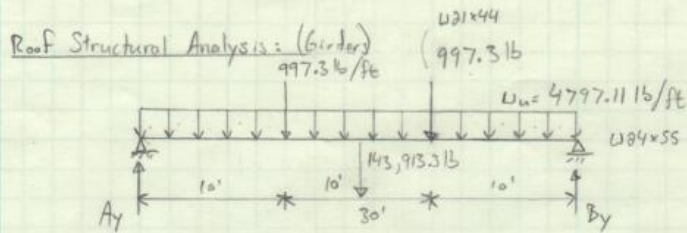 W21x44
Roof Structural Analysis: (Girders)
997.3 lb/ft
997.3 lb
Wu = 4797.11 lb/ft
W24x55
143,913.3 lb
10' 10' 10'
30'
Ay By